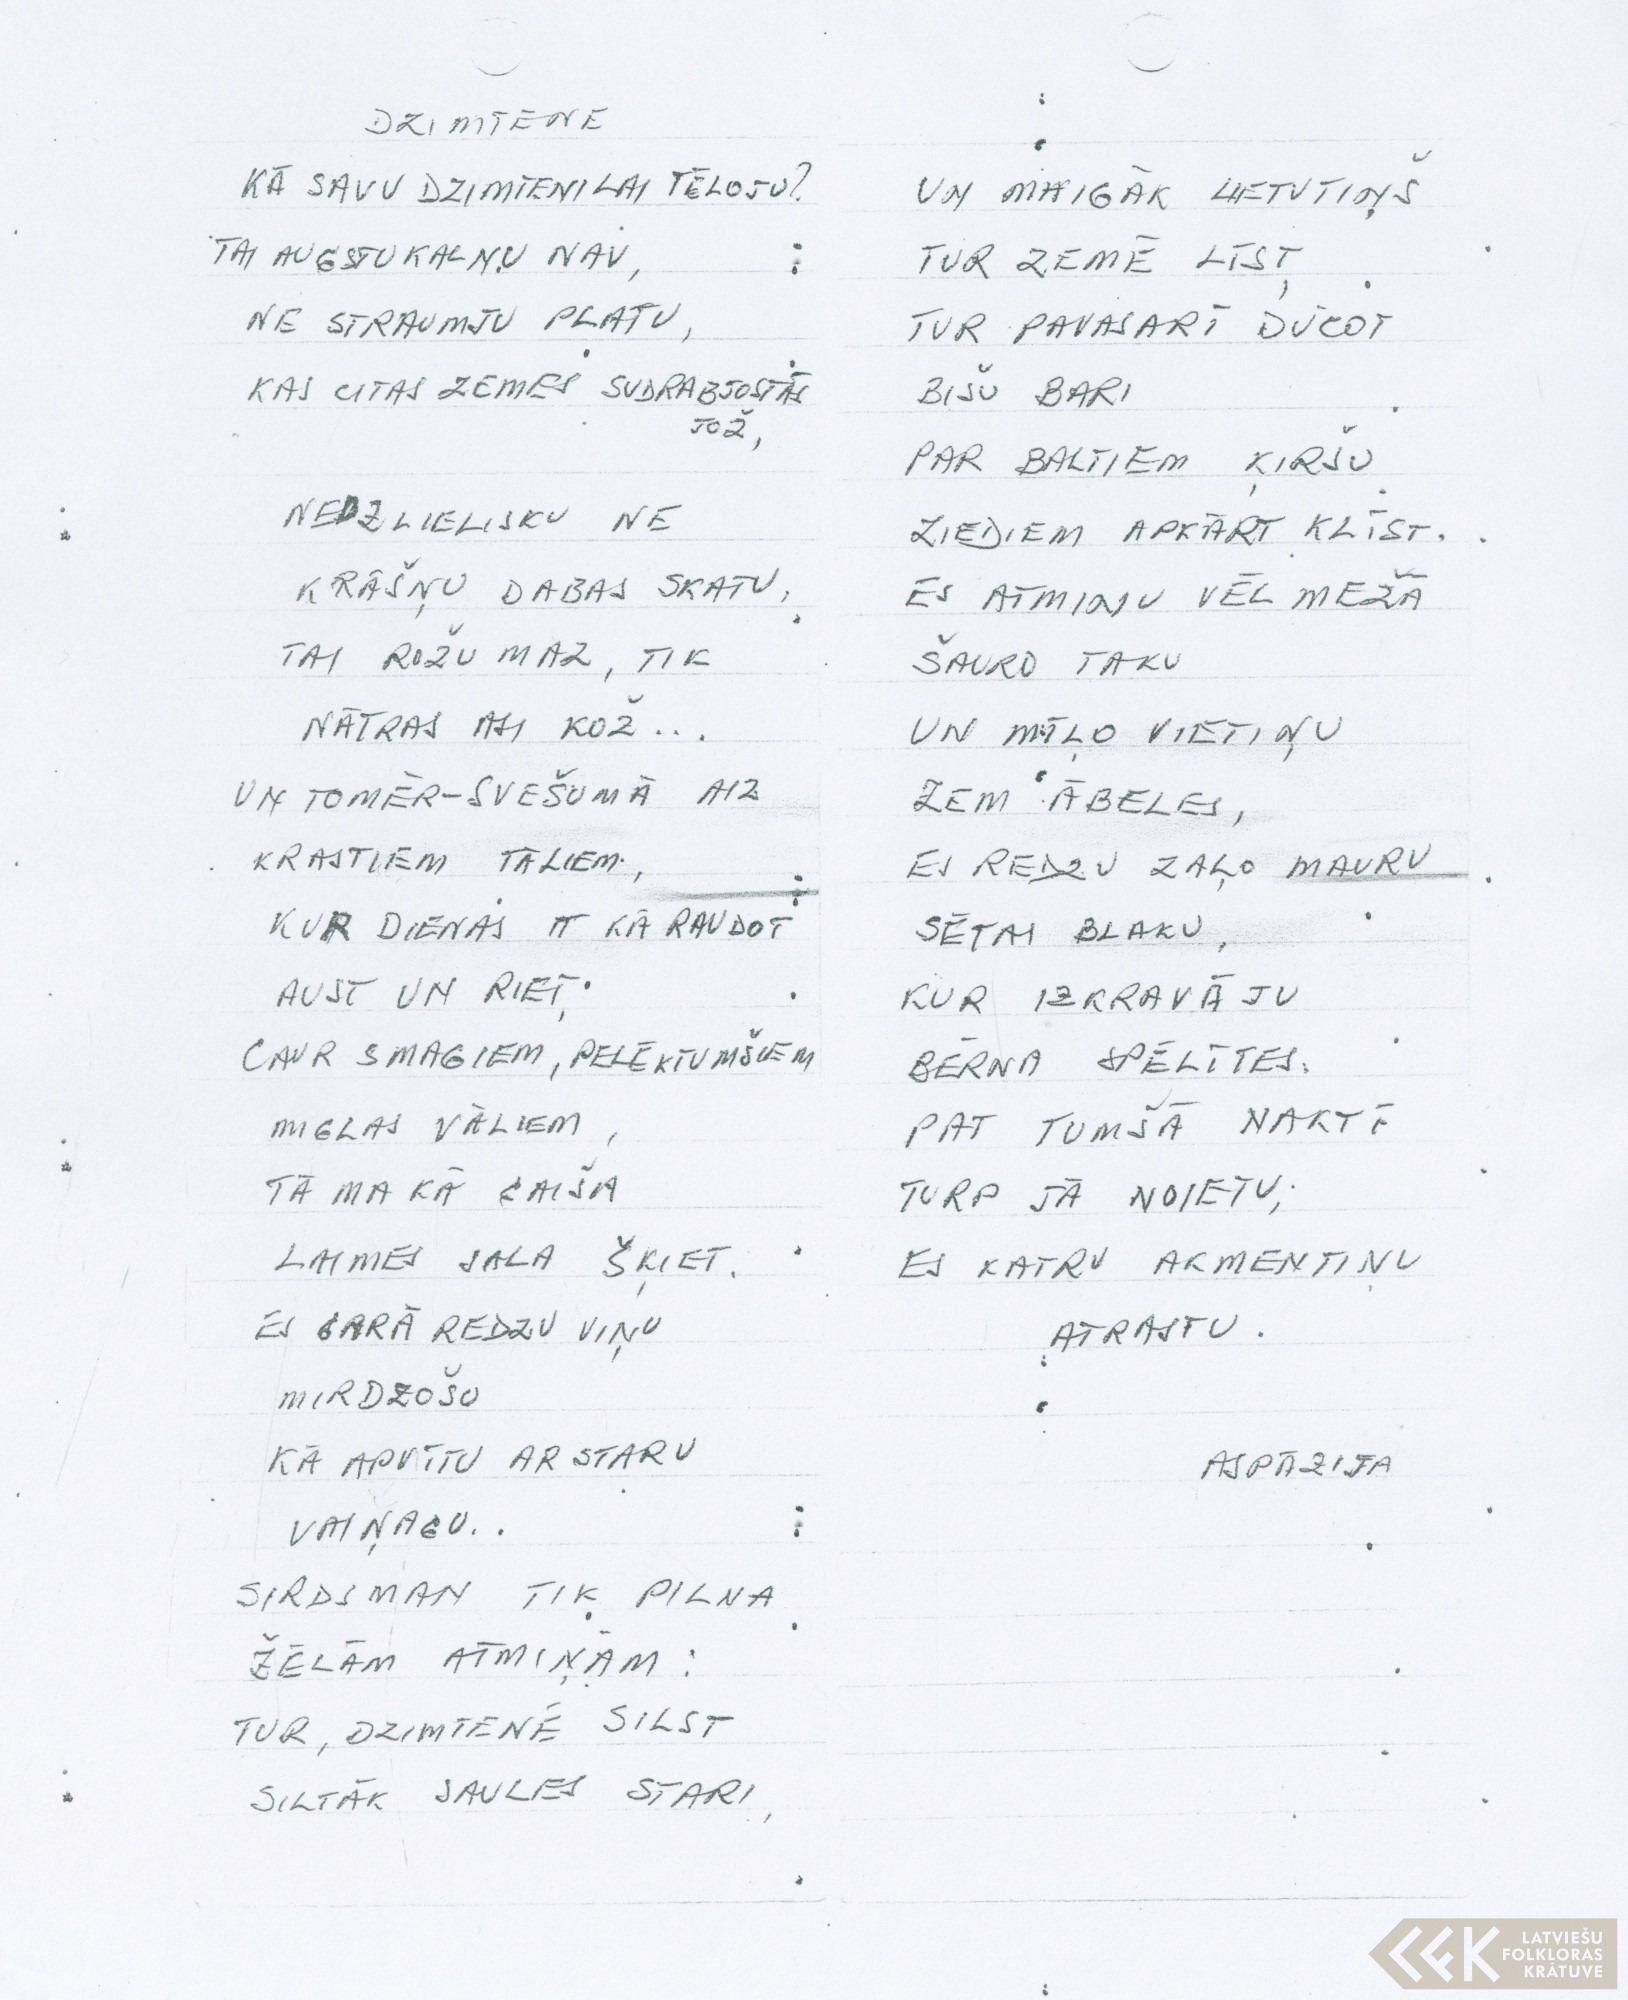 DZIMTENE
KĀ SAVU DZIMTENI LAI TĒLOJU?
TAI AUGSTU KALNU NAV,
NE STRAUMJU PLATU,
KAS CITAS ZEMES SUDRABJOSTĀS
JOŽ,
NEDZ LIELISKU NE
KRĀŠŅU DABAS SKATU,
TAI ROŽU MAZ, TIK
NĀTRAS ASI KOŽ...
UN TOMĒR-SVEŠUMĀ AIZ
KRASTIEM TĀLIEM,
KUR DIENAS IT KĀ RAUDOT
AUST UN RIET,
CAUR SMAGIEM, PELĒKTUMŠIEM
MIGLAS VĀLIEM,
TĀ MA KĀ GAIŠA
LAIMES SALA ŠĶIET.
ES GARĀ REDZU VIŅU
MIRDZOŠU
KĀ APVĪTU AR STARU
VAIŅAGU..
SIRDS MAN TIK PILNA
ŽĒLĀM ATMIŅĀM:
TUR, DZIMTENĒ SILST
SILTĀK SAULES STARI,
UN MAIGĀK LIETUTIŅŠ
TUR ZEMĒ LĪST,
TUR PAVASARĪ DŪCOT
BIŠU BARI
PAR BALTIEM ĶIRŠU
ZIEDIEM APKĀRT KLĪST.
ES ATMINU VĒL MEŽĀ
ŠAURO TAKU
UN MĪĻO VIETIŅU
ZEM ĀBELES,
ES REDZU ZAĻO MAURU
SĒTAI BLAKU,
KUR IZKRAVĀJU
BĒRNA SPĒLĪTES.
PAT TUMŠĀ NAKTĪ
TURP JĀ NOIETU;
ES KATRU AKMENTIŅU
ATRASTU.
ASPĀZIJA
LATVIEŠU
FOLKLORAS
KRĀTUVE